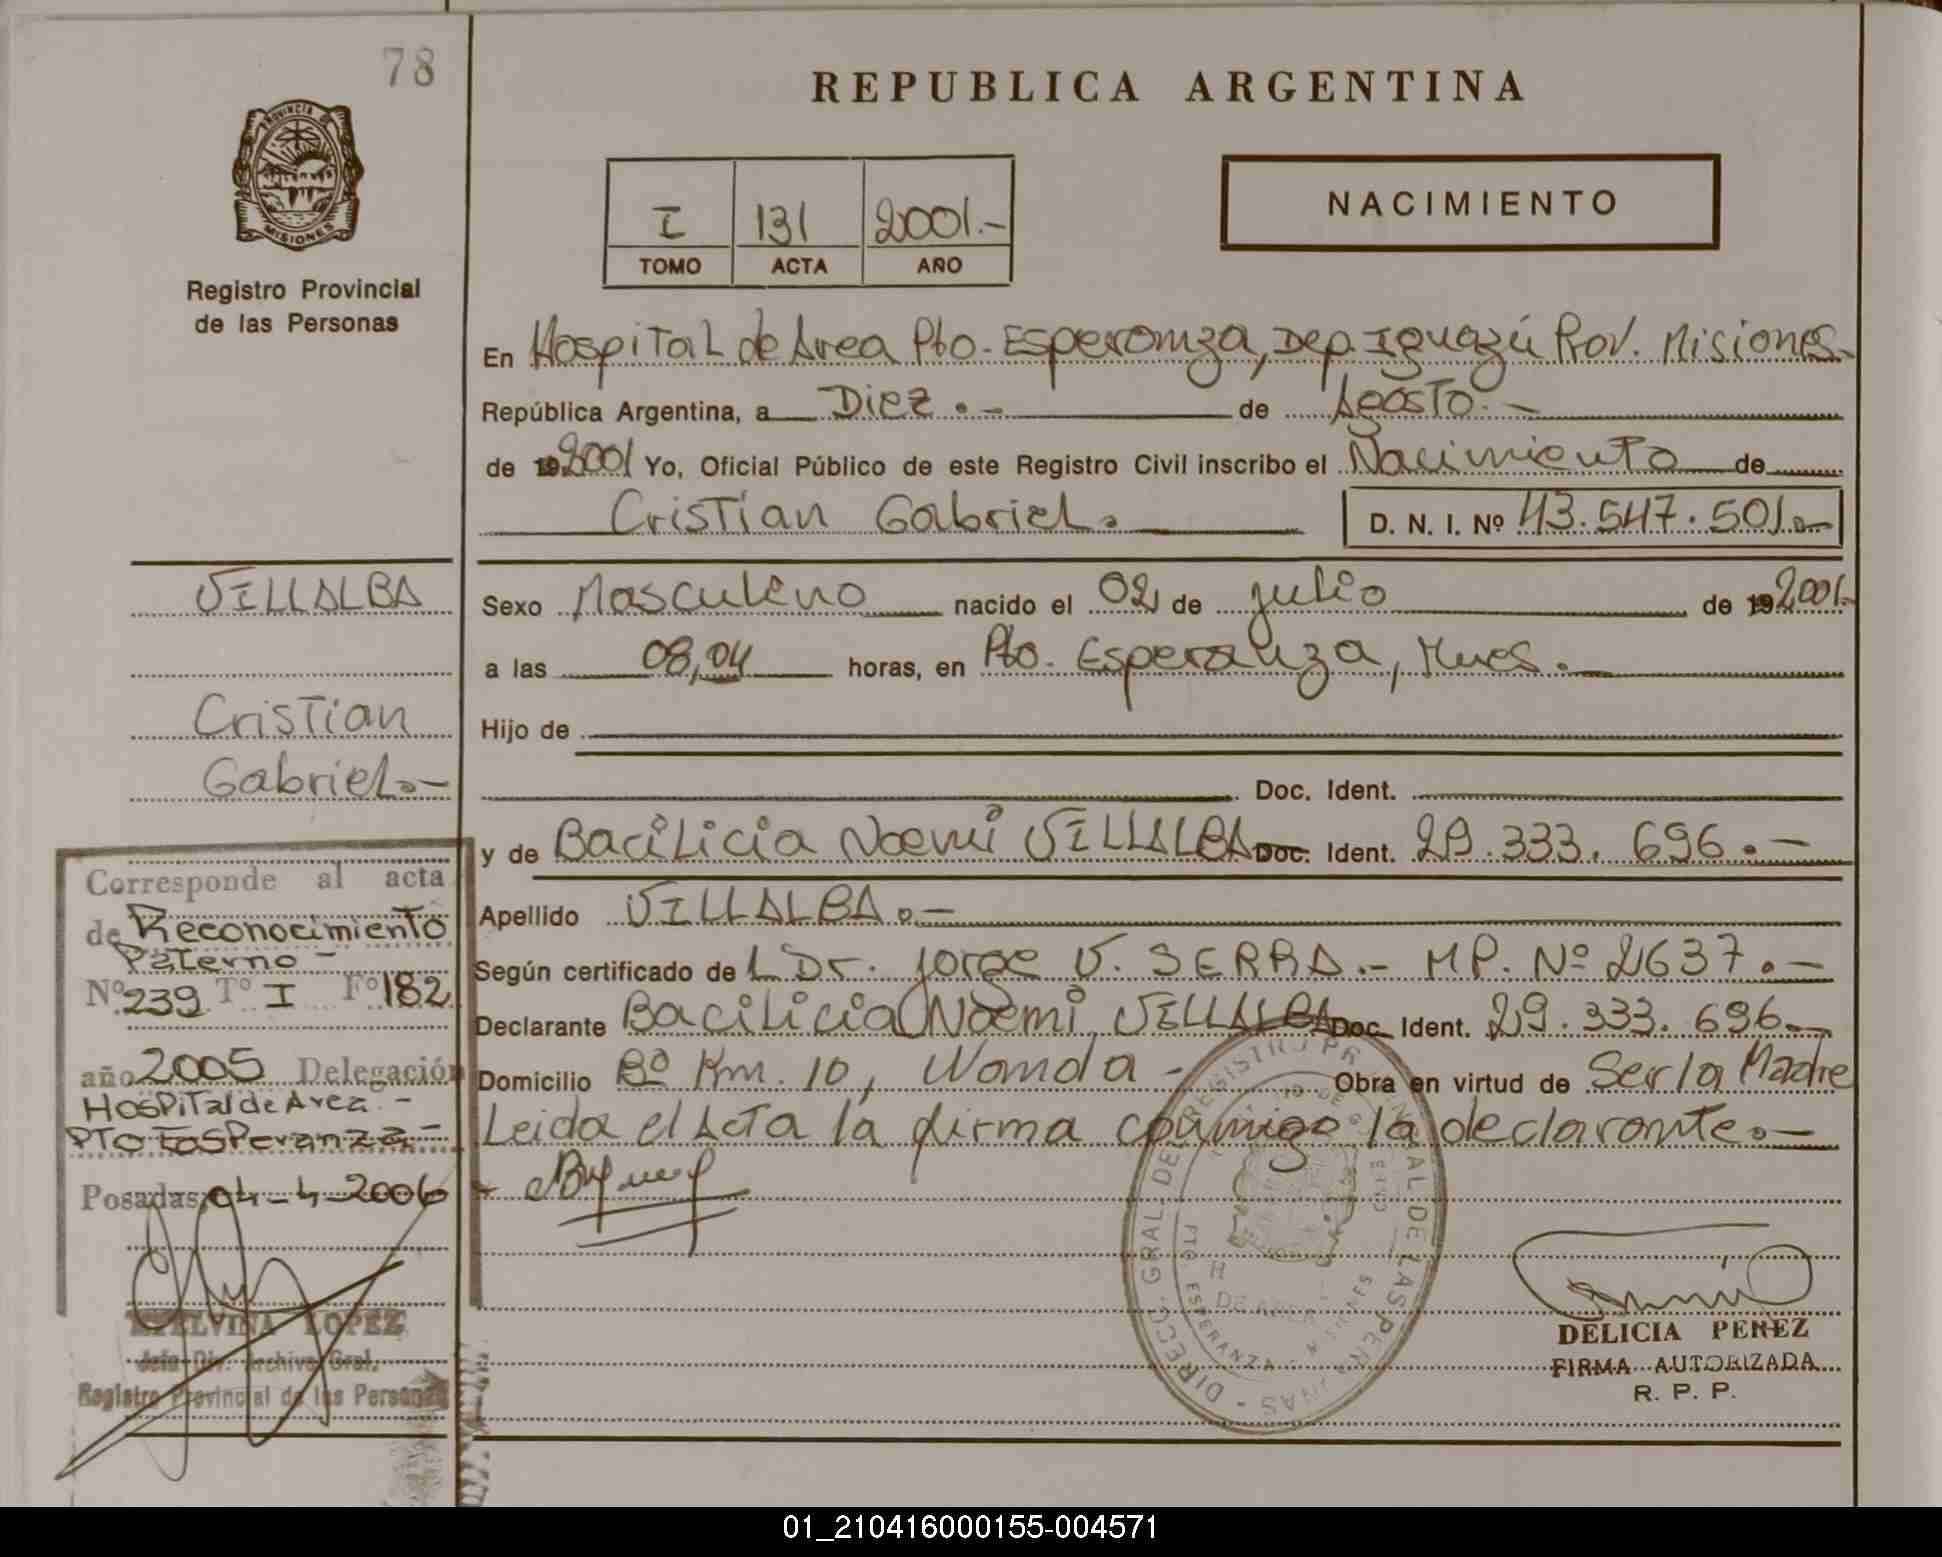 78
REPUBLICA ARGENTINA
PROVINCIA DE
MISIONES
Registro Provincial
de las Personas
I 131 2001.-
TOMO ACTA AÑO
NACIMIENTO
En Hospital de Area Pto. Esperanza, Dep. Iguazú Prov. Misiones.
República Argentina, a Diez.- de Agosto.-
de 19 2001 Yo, Oficial Público de este Registro Civil inscribo el Nacimiento de
Cristian Gabriel. D. N. I. Nº 43.547.501.-
VILLALBA
Cristian
Gabriel.-
Sexo Masculino nacido el 02 de julio de 19 2001.-
a las 08,04 horas, en Pto. Esperanza, Mnes.-
Hijo de
Doc. Ident.
y de Bacilicia Noemi VILLALBA Doc. Ident. 29.333.696.-
Apellido VILLALBA.-
Según certificado de L Dr. Jorge V. SERRA.- MP. Nº 2637.-
Declarante Bacilicia Noemi VILLALBA Doc. Ident. 29.333.696.-
Domicilio Bº Km. 10, Wanda - Obra en virtud de Ser la Madre
Leida el Acta la firma conmigo la declarante.-
Corresponde al acta
de Reconocimiento
Paterno -
Nº 239 Tº I Fº 182
año 2005 Delegación
Hospital de Area -
PTO ESPeranza-
Posadas, 04-4-2006
ETELVINA LOPEZ
Jefa Div. Archivo Gral.
Registro Provincial de las Personas
DIRECC. GRAL. DEL REGISTRO PROVINCIAL DE LAS PERSONAS
PTO. ESPERANZA - MISIONES
DELICIA PEREZ
FIRMA AUTORIZADA
R. P. P.
01_210416000155-004571